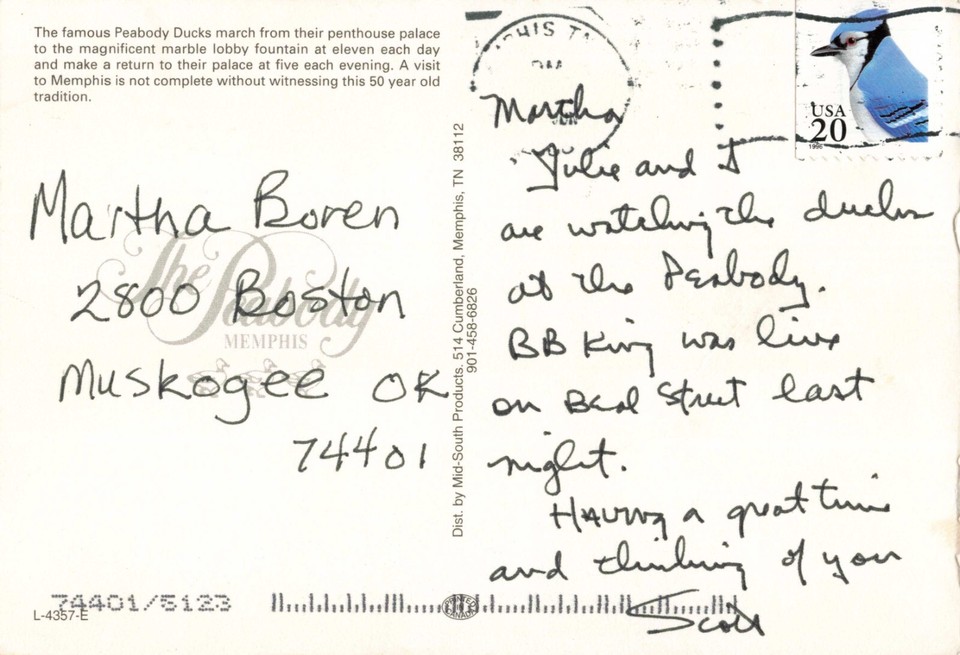 The famous Peabody Ducks march from their penthouse palace
to the magnificent marble lobby fountain at eleven each day
and make a return to their palace at five each evening. A visit
to Memphis is not complete without witnessing this 50 year old
tradition.
Martha Boren
2800 Boston
Muskogee OK
74401
The Peabody
MEMPHIS
74401/5123
L-4357-E
Dist. by Mid-South Products. 514 Cumberland, Memphis, TN 38112
901-458-6826
PRINTED IN CANADA
PHIS TN
USA
20
1996
Martha
Julie and I
are watching the ducks
at the Peabody.
BB King was live
on Beal Street last
night.
Having a great time
and thinking of you
Scott